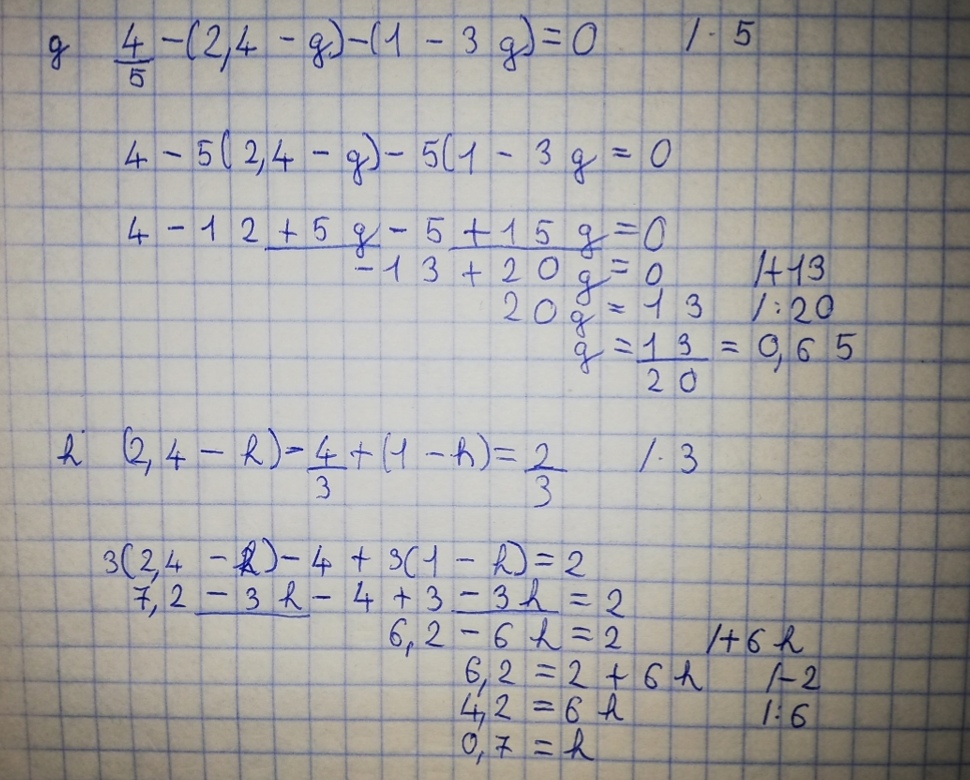 g 4/5 - (2,4 - g) - (1 - 3g) = 0 /· 5
4 - 5(2,4 - g) - 5(1 - 3g = 0
4 - 12 + 5g - 5 + 15g = 0
-13 + 20g = 0 /+13
20g = 13 /:20
g = 13/20 = 0,65
h (2,4 - h) - 4/3 + (1 - h) = 2/3 /· 3
3(2,4 - h) - 4 + 3(1 - h) = 2
7,2 - 3h - 4 + 3 - 3h = 2
6,2 - 6h = 2 /+6h
6,2 = 2 + 6h /-2
4,2 = 6h /:6
0,7 = h